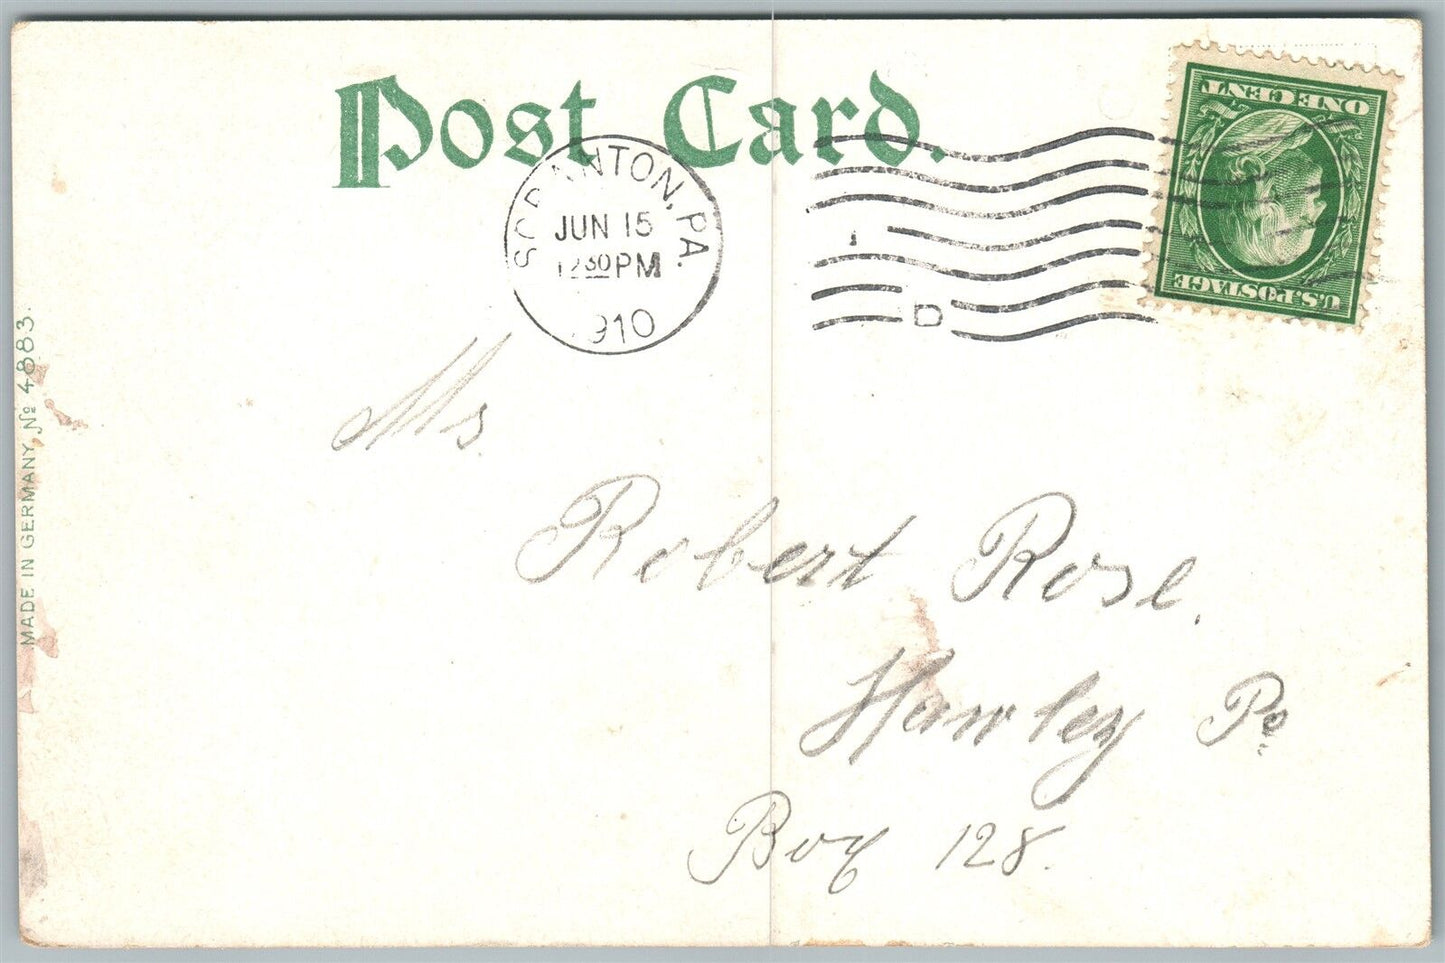 Post Card.
SCRANTON, PA.
JUN 15
12 30 PM
1910
D
U.S. POSTAGE
ONE CENT
MADE IN GERMANY, No 4883.
Ms.
Robert Rose.
Hawley Pa
Box 128.